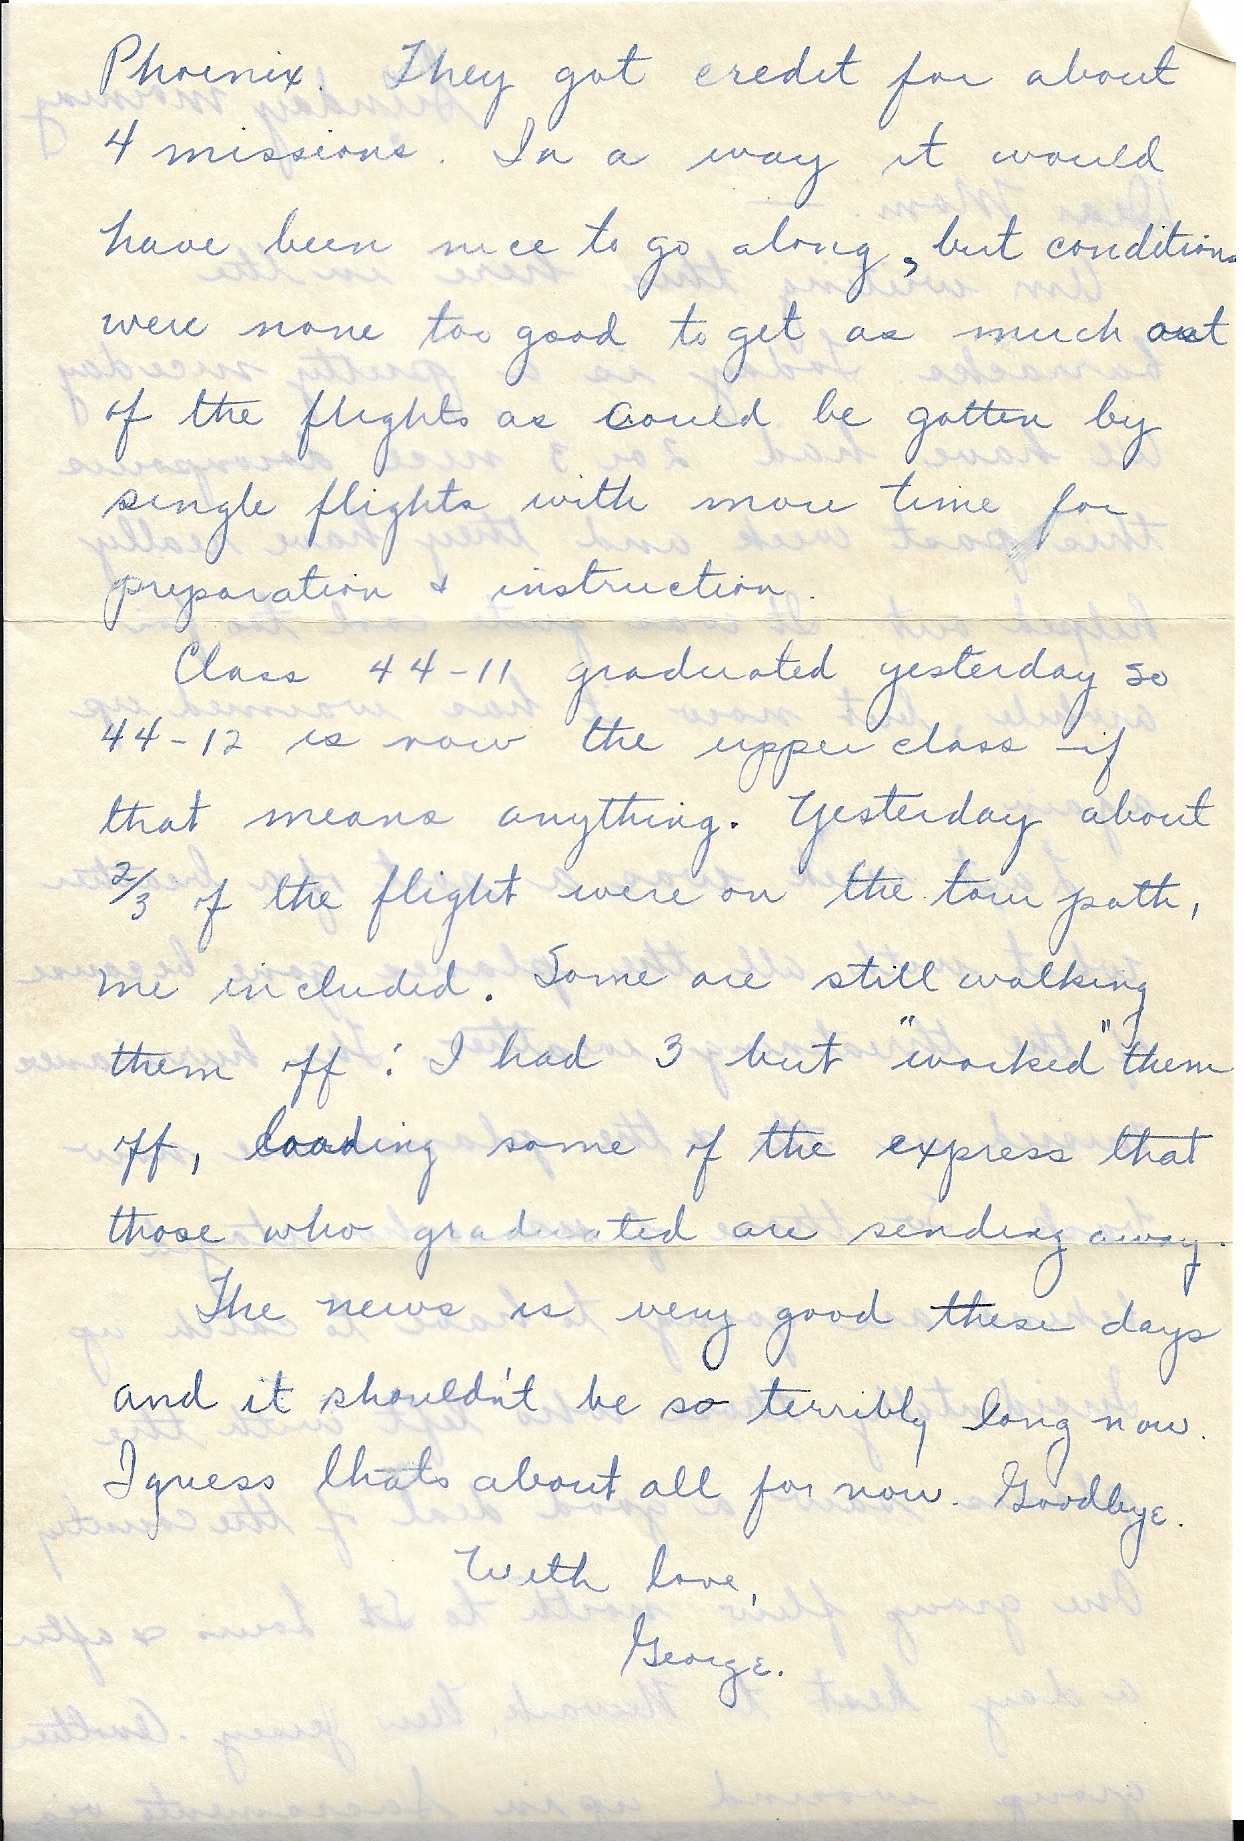 Phoenix. They got credit for about
4 missions. In a way it would
have been nice to go along, but conditions
were none too good to get as much out
of the flights as could be gotten by
single flights with more time for
preparation & instruction.
Class 44-11 graduated yesterday so
44-12 is now the upper class - if
that means anything. Yesterday about
2/3 of the flight were on the tour path,
me included. Some are still walking
them off! I had 3 but "worked" them
off, loading some of the express that
those who graduated are sending away.
The news is very good these days
and it shouldn't be so terribly long now.
I guess thats about all for now. Goodbye.
With love,
George.